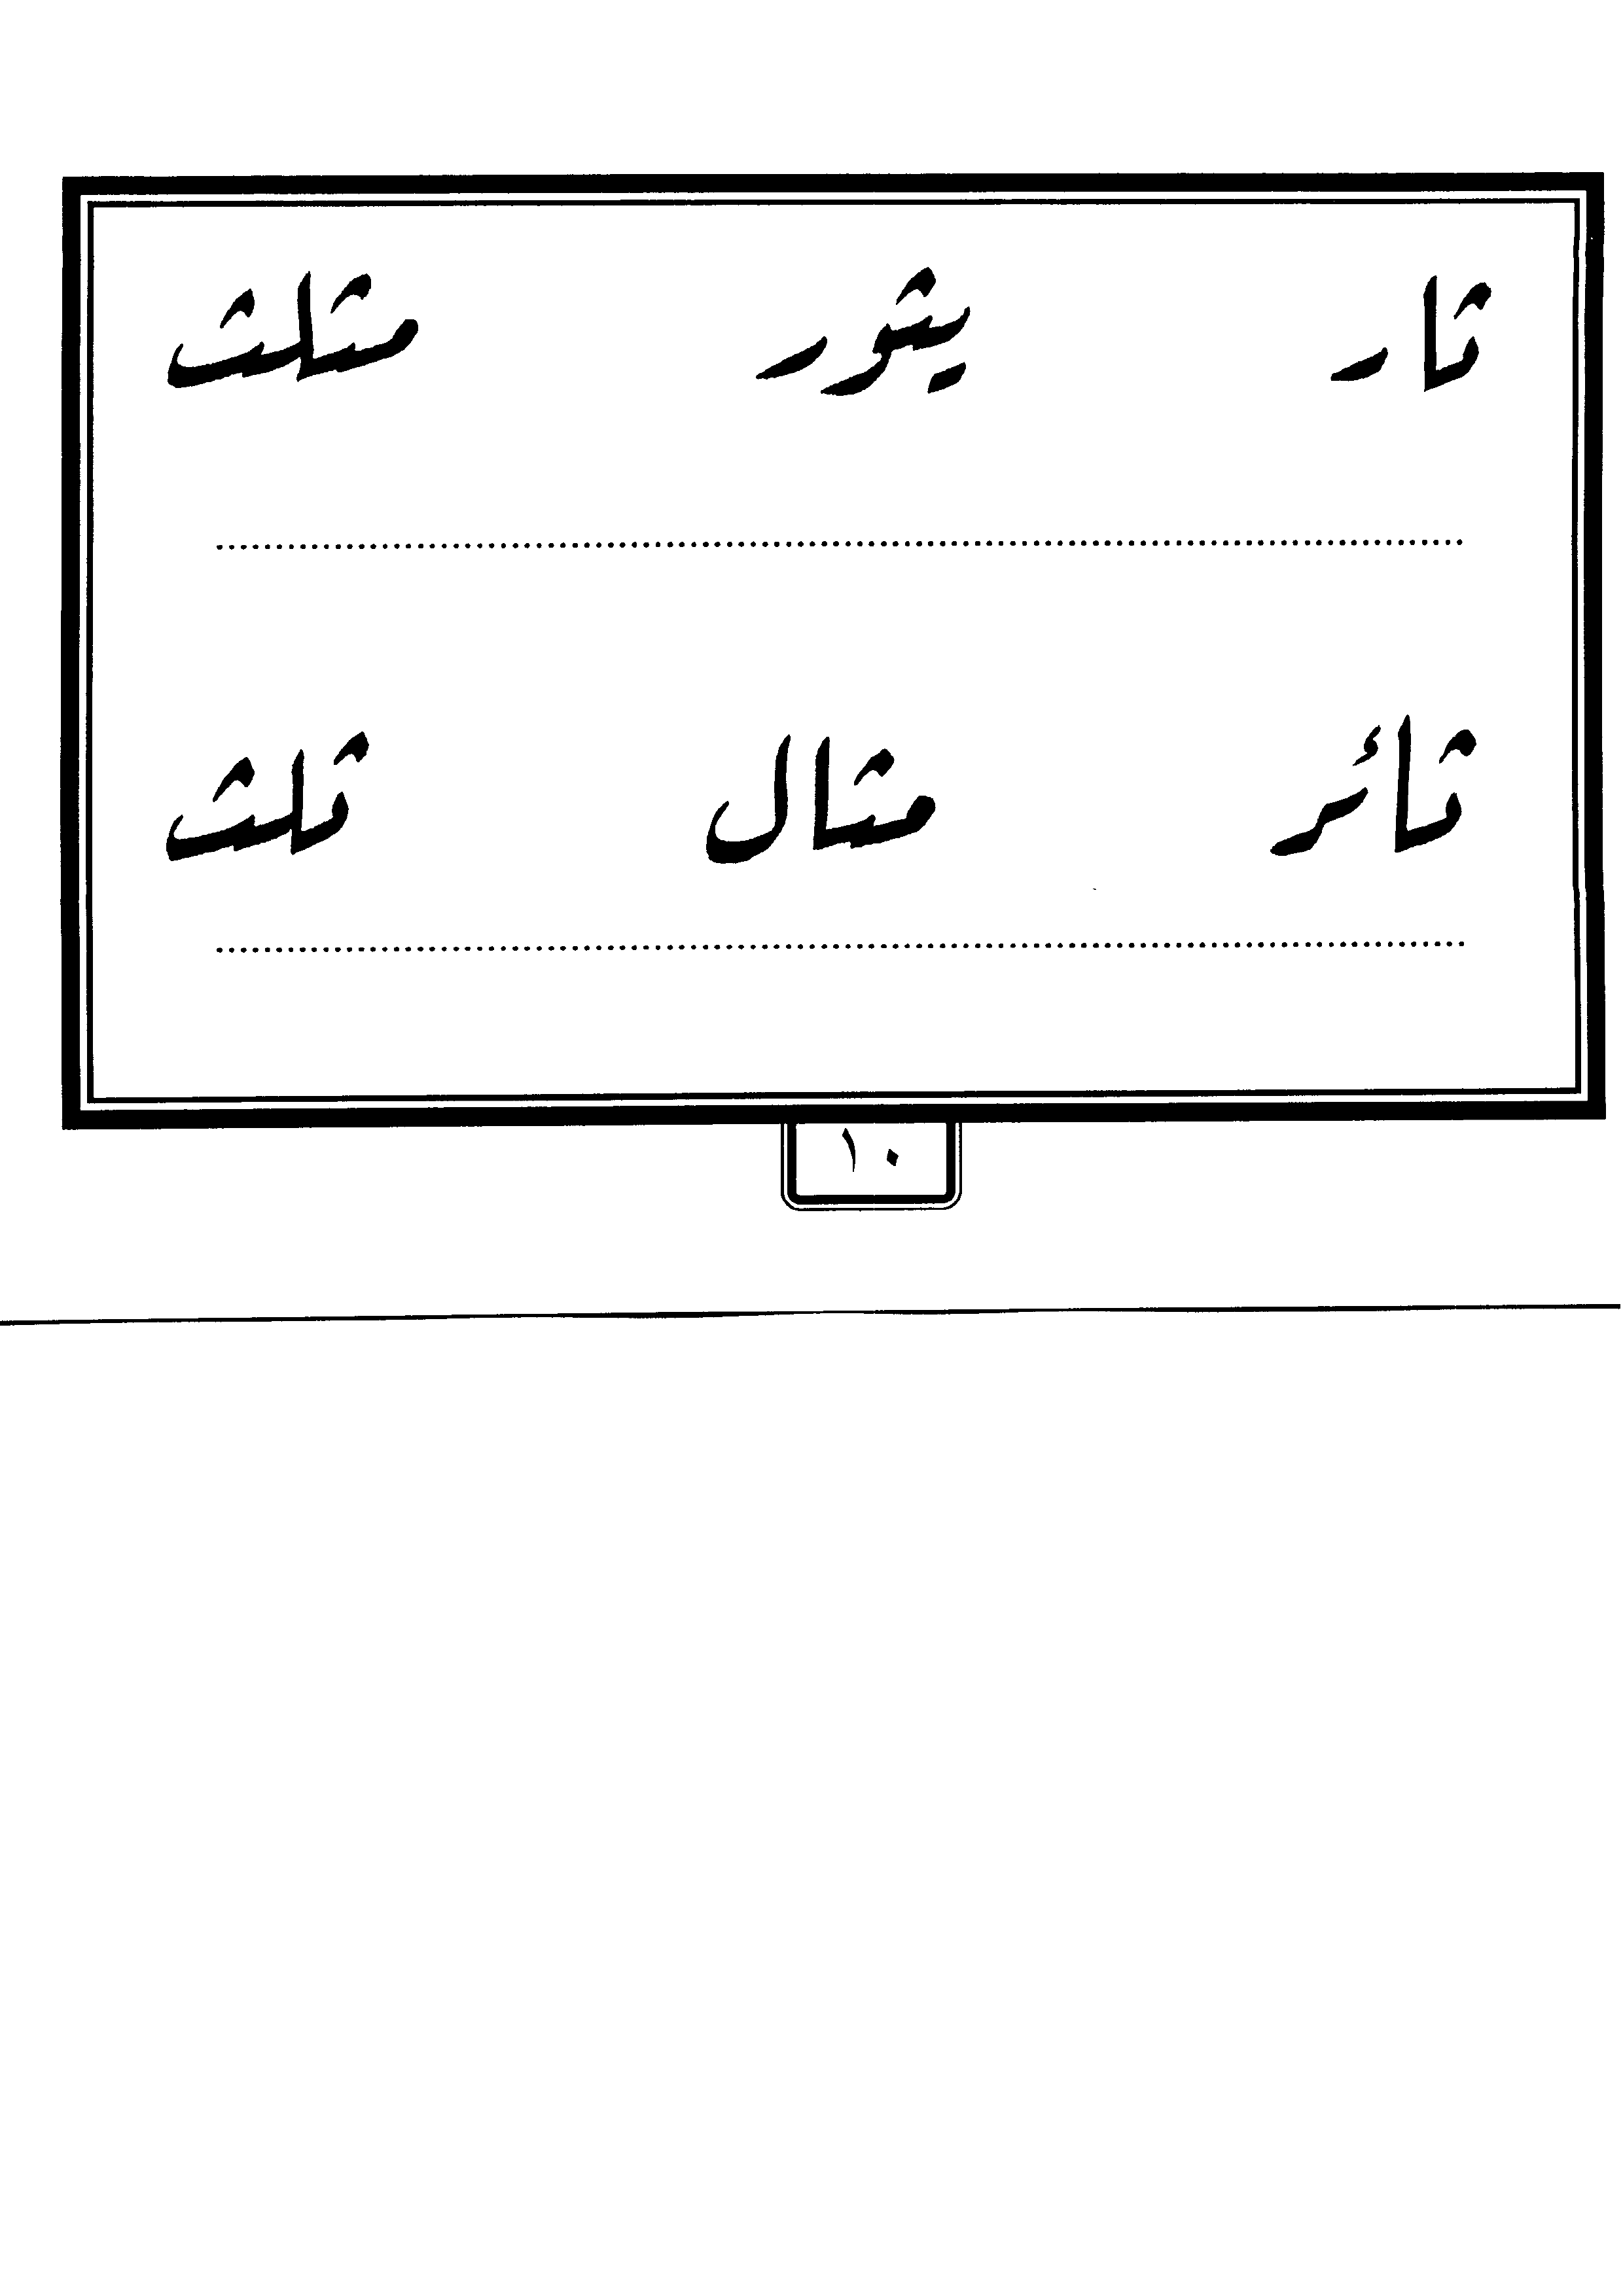 ثار يثور مثلث
ثائر مثال ثلث
١٠